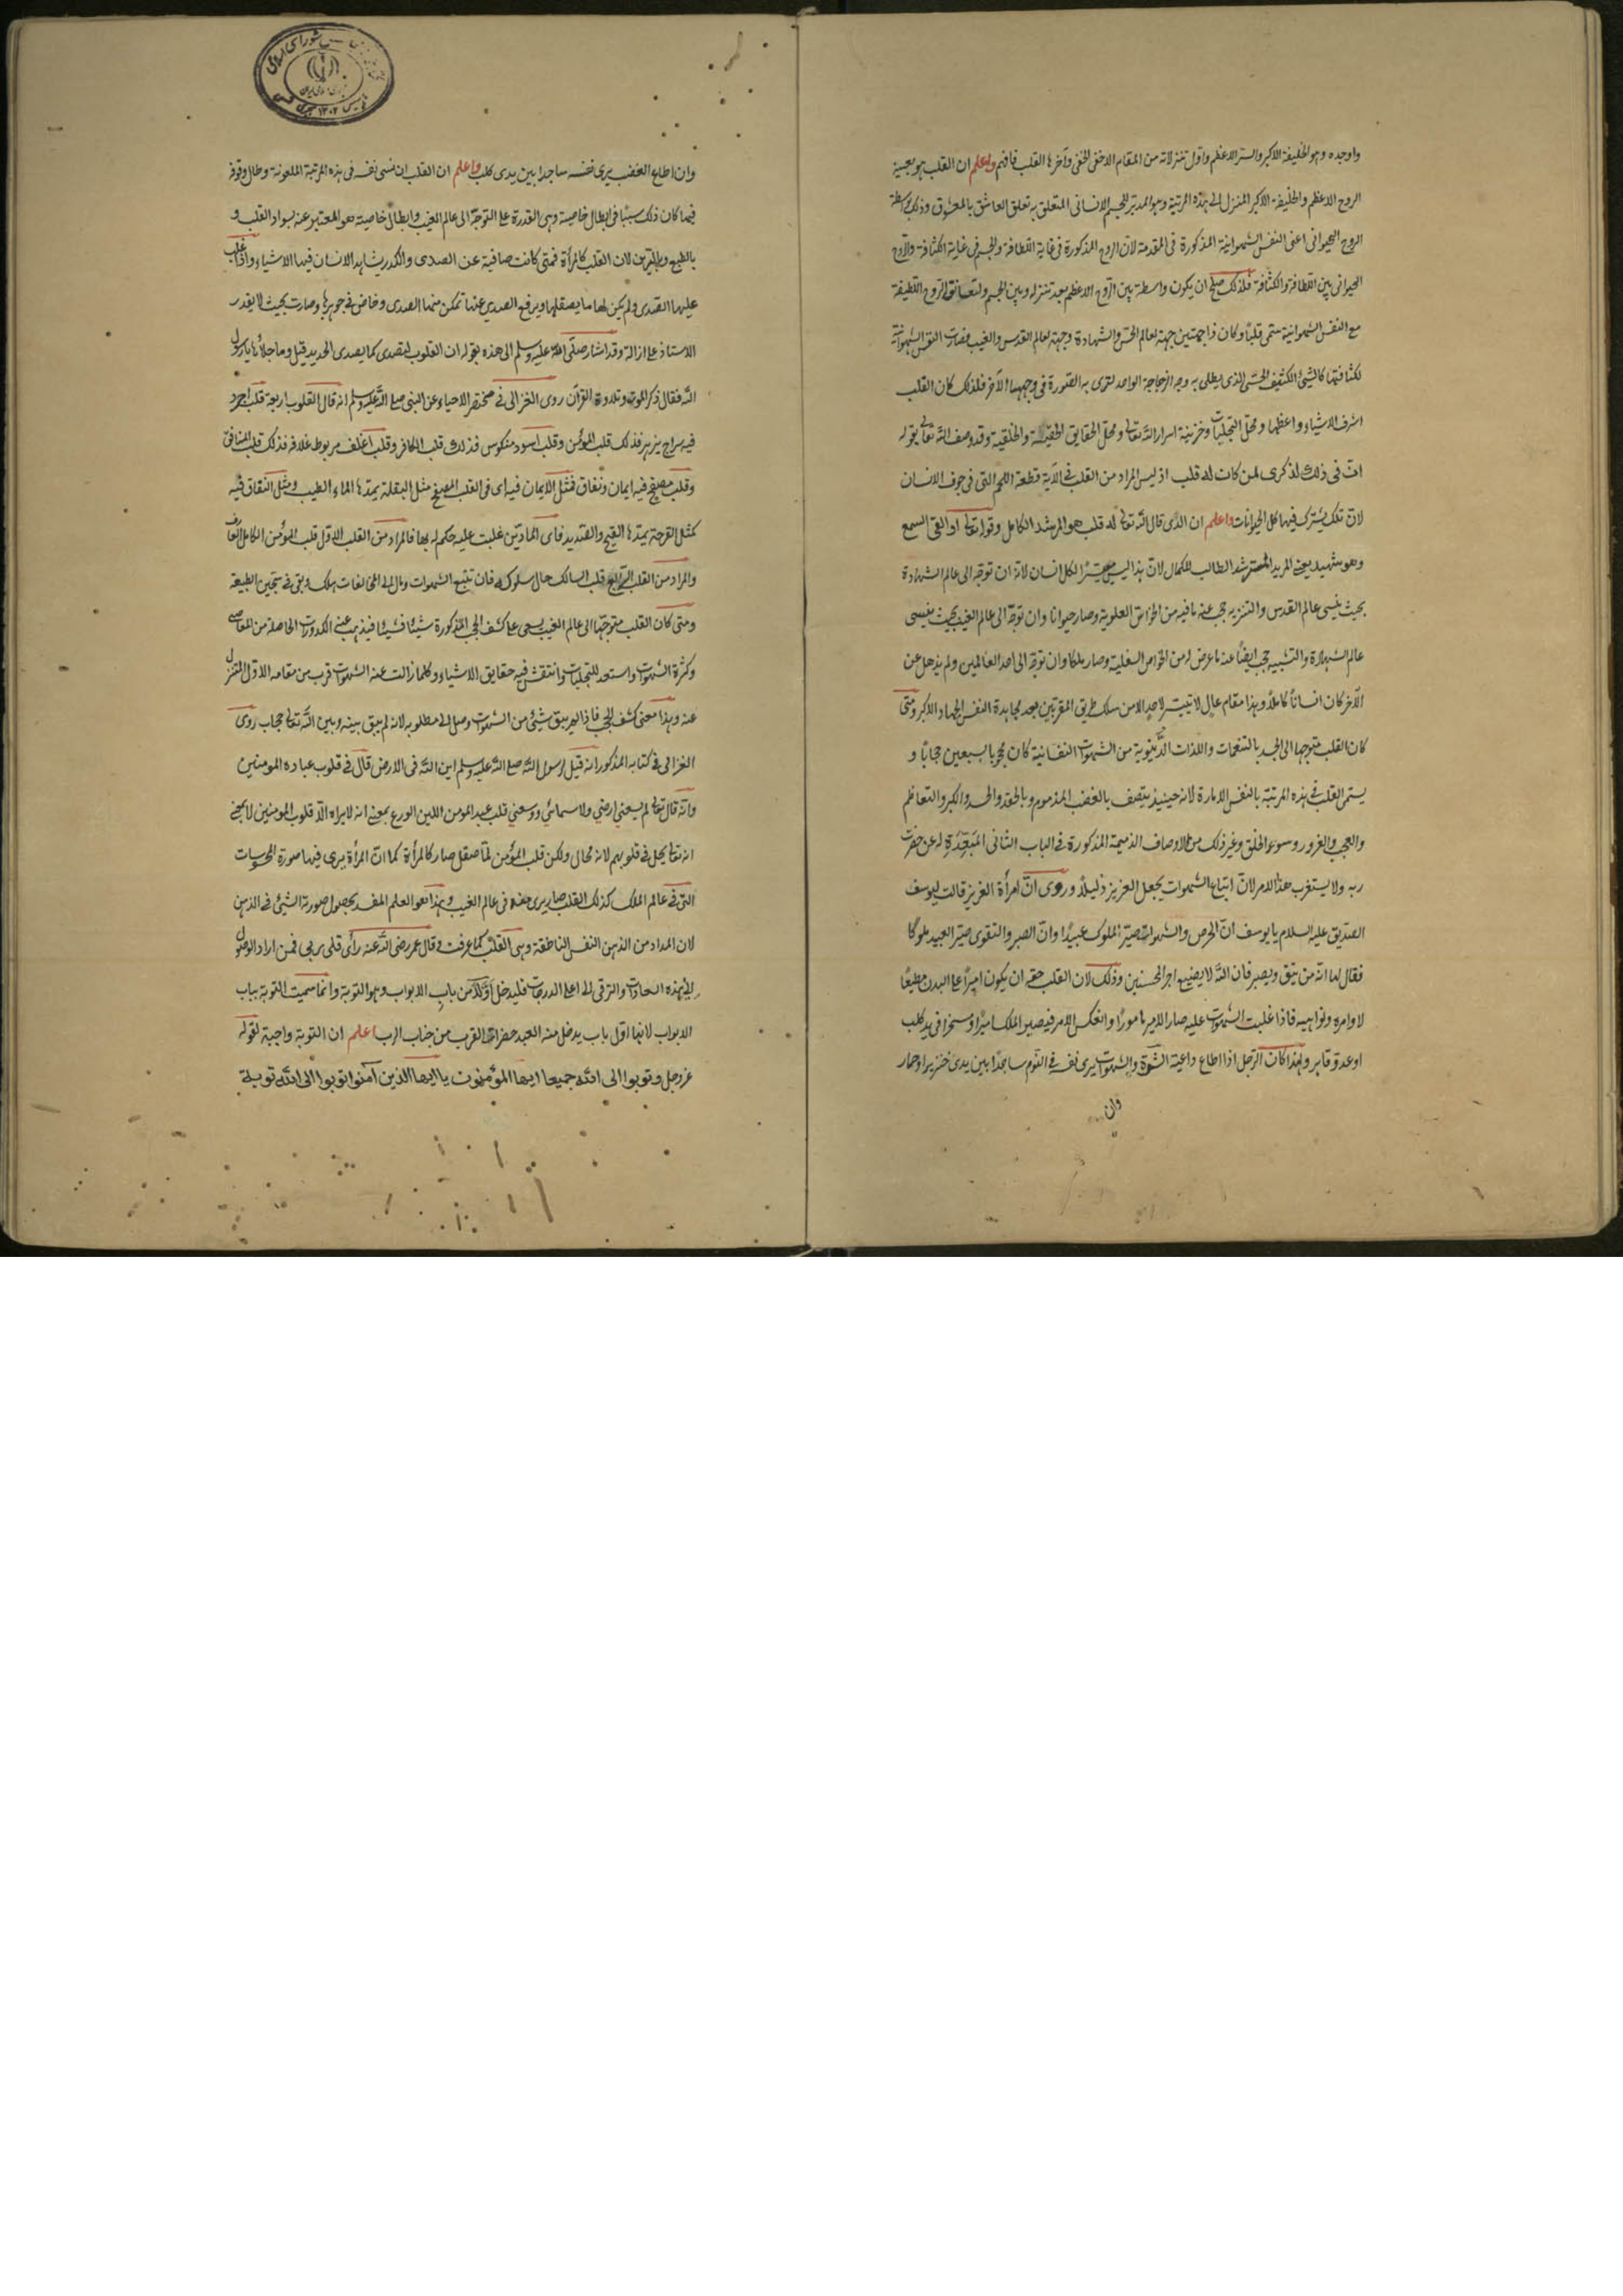 واوجده وهو الخليفة الاكبر والستر الاعظم واول تنزلاته من المقام الاخفى الخفى وآخرها القلب فافهم واعلم ان القلب هو بعينه
الروح الاعظم والخليفة الاكبر المنزل الى هذه المرتبة وهو المدبر للجسم الانسانى المتعلق به تعلق العاشق بالمعشوق وذلك بواسطة
الروح الحيوانى اعنى النفس الشهوانية المذكورة فى المقدمة لان الروح المذكورة فى غاية اللطافة والجسم فى غاية الكثافة والروح
الحيوانى بين اللطافة والكثافة فلذلك صلح ان يكون واسطة بين الروح الاعظم بعد تنزله وبين الجسم ولتعانق الروح اللطيفة
مع النفس الشهوانية سمى قلبا وكان ذا جهتين جهة لعالم الحس والشهادة وجهة لعالم القدس والغيب فصارت النفس الشهوانية
لكثافتها كالشئ الكثيف الحسى الذى يطلى به وجه الزجاجة الواحد لترى به الصورة فى وجهها الآخر فلذلك كان القلب
اشرف الاشياء واعظمها ومحل التجليات وخزينة اسرار الله تعالى ومحل الحقايق الحقية والخلقية وقد وصف الله تعالى بقوله
ان فى ذلك لذكرى لمن كان له قلب اذ ليس المراد من القلب فى الآية قطعة اللحم التى فى جوف الانسان
لان تلك يشترك فيها كل الحيوانات واعلم ان الذى قال الله تعالى له قلب هو المرشد الكامل وقوله تعالى او القى السمع
وهو شهيد يعنى المريد المسترشد الطالب للكمال لان هذا ليس ميسرا لكل انسان لانه ان توجه الى عالم الشهادة
بحيث ينسى عالم القدس والتنزيه حجب عنه ما فيه من الخواص العلوية وصار حيوانا وان توجه الى عالم الغيب بحيث ينسى
عالم الشهادة والتشبيه حجب ايضا عنه ما عرض له من الخواص السفلية وصار ملكا وان توجه الى احد العالمين ولم يذهل عن
الآخر كان انسانا كاملا وهذا مقام عال لا يتيسر لاحد الا من سلك طريق المقربين بعد مجاهدة النفس الجهاد الاكبر ومتى
كان القلب متوجها الى الجسد بالتنعمات واللذات الدنيوية من الشهوات النفسانية كان محجوبا بسبعين حجابا و
يسمى القلب فى هذه المرتبة بالنفس الامارة لانه حينئذ يتصف بالغضب المذموم وبالحقد والحسد والكبر والتعاظم
والعجب والغرور وسوء الخلق وغير ذلك من الاوصاف الذميمة المذكورة فى الباب الثانى المبعدة له عن حضرت
ربه ولا يستغرب هذا الامر لان اتباع الشهوات يجعل العزيز ذليلا وروى ان امرأة العزيز قالت ليوسف
الصديق عليه السلام يا يوسف ان الحرص والشهوات صير الملوك عبيدا وان الصبر والتقوى صير العبيد ملوكا
فقال لها انه من يتق ويصبر فان الله لا يضيع اجر المحسنين وذلك لان القلب حقه ان يكون اميرا على البدن مطيعا
لاوامره ونواهيه فاذا غلبت الشهوات عليه صار الامير مامورا وانعكس الامر فيصير الملك اسيرا ومسخرا فى يد كلب
او عدو قاهر ولهذا كان الرجل اذا اطاع داعية الشره والشهوات يرى نفسه فى النوم ساجدا بين يدى خنزير او حمار
وان
وان اطاع الغضب يرى نفسه ساجدا بين يدى كلب واعلم ان القلب ان نسى نفسه فى هذه المرتبة الملعونة وطال وقوفه
فيها كان ذلك سببا فى ابطال خاصيته وهى القدرة على التوجه الى عالم الغيب وابطال خاصيته هو المعتبر عنه بسواد القلب و
بالطبع وبالرين لان القلب كالمرأة فمتى كانت صافية عن الصدى والكدر يشاهد الانسان فيها الاشياء واذا غلب
عليها الصدى ولم يكن لها ما يصقلها ويرفع الصدى عنها تمكن منها الصدى وخاض فى جوهرها وصارت بحيث لا يقدر
الاستاذ على ازالته وقد اشار صلى الله عليه وسلم الى هذه بقوله ان القلوب لتصدى كما يصدى الحديد قيل وما جلاؤها يا رسول
الله فقال ذكر الموت وتلاوة القرآن روى الغزالى فى مختصر الاحياء عن النبى صلى الله عليه وسلم انه قال القلوب اربعة قلب اجرد
فيه سراج يزهر فذلك قلب المؤمن وقلب اسود منكوس فذلك قلب الكافر وقلب اغلف مربوط غلافه فذلك قلب المنافق
وقلب مصفح فيه ايمان ونفاق فمثل الايمان فيه اى فى القلب المصفح مثل البقلة يمدها الماء الطيب ومثل النفاق فيه
كمثل القرحة يمدها القيح والصديد فاى المادتين غلبت عليه حكم له بها فالمراد من القلب الاول قلب المؤمن الكامل العارف
والمراد من القلب الرابع قلب السالك حال سلوكه فان تتبع الشهوات ومال الى المخالفات هلك وبقى فى سجين الطبيعة
ومتى كان القلب متوجها الى عالم الغيب يسعى على كشف الحجب المذكورة شيئا فشيئا فيذهب عنه الكدورات الحاصلة من المعاصى
وكثرة الشهوات واستعد للتجليات وانتقش فيه حقايق الاشياء وكلما زالت عنه الشهوات قرب من مقامه الاول المتنزل
عنه وهذا معنى كشف الحجب فاذا لم يبق شئ من الشهوات وصل الى مطلوبه لانه لم يبق بينه وبين الله تعالى حجاب روى
الغزالى فى كتابه المذكور انه قيل لرسول الله صلى الله عليه وسلم اين الله فى الارض قال فى قلوب عباده المومنين
وانه قال تعالى لم يسعنى ارضى ولا سمائى ووسعنى قلب عبد المومن اللين الورع بمعنى انه لا يراه الا قلوب المومنين لا بمعنى
انه تعالى يحل فى قلوبهم لانه محال ولكن قلب المؤمن لما صقل صار كالمرأة كما ان المرأة يرى فيها صورة المحسوسات
التى فى عالم الملك كذلك القلب صار يرى فيه ما فى عالم الغيب وهذا هو العلم المفسر بحصول صورة الشئ فى الذهن
لان المراد من الذهن النفس الناطقة وهى القلب كما عرفت وقال عمر رضى الله عنه رأى قلبى ربى فمن اراد الوصول
الى هذه السعادات والترقى الى اعلى الدرجات فليدخل اولا من باب الابواب وهو التوبة وانما سميت التوبة بباب
الابواب لانها اول باب يدخل منه العبد حضرات القرب من جناب الرب اعلم ان التوبة واجبة لقوله
عز وجل وتوبوا الى الله جميعا ايها المؤمنون يا ايها الذين آمنوا توبوا الى الله توبة